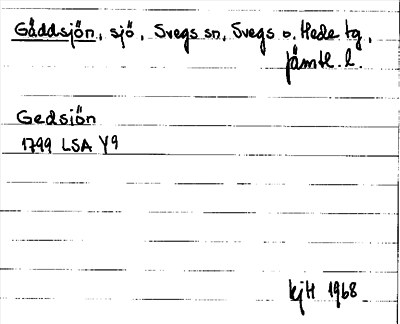 Gäddsjön, sjö, Svegs sn, Svegs o. Hede tg,
Jämtl. l.
Gedsiön
1799 LSA Y9
kjH 1968